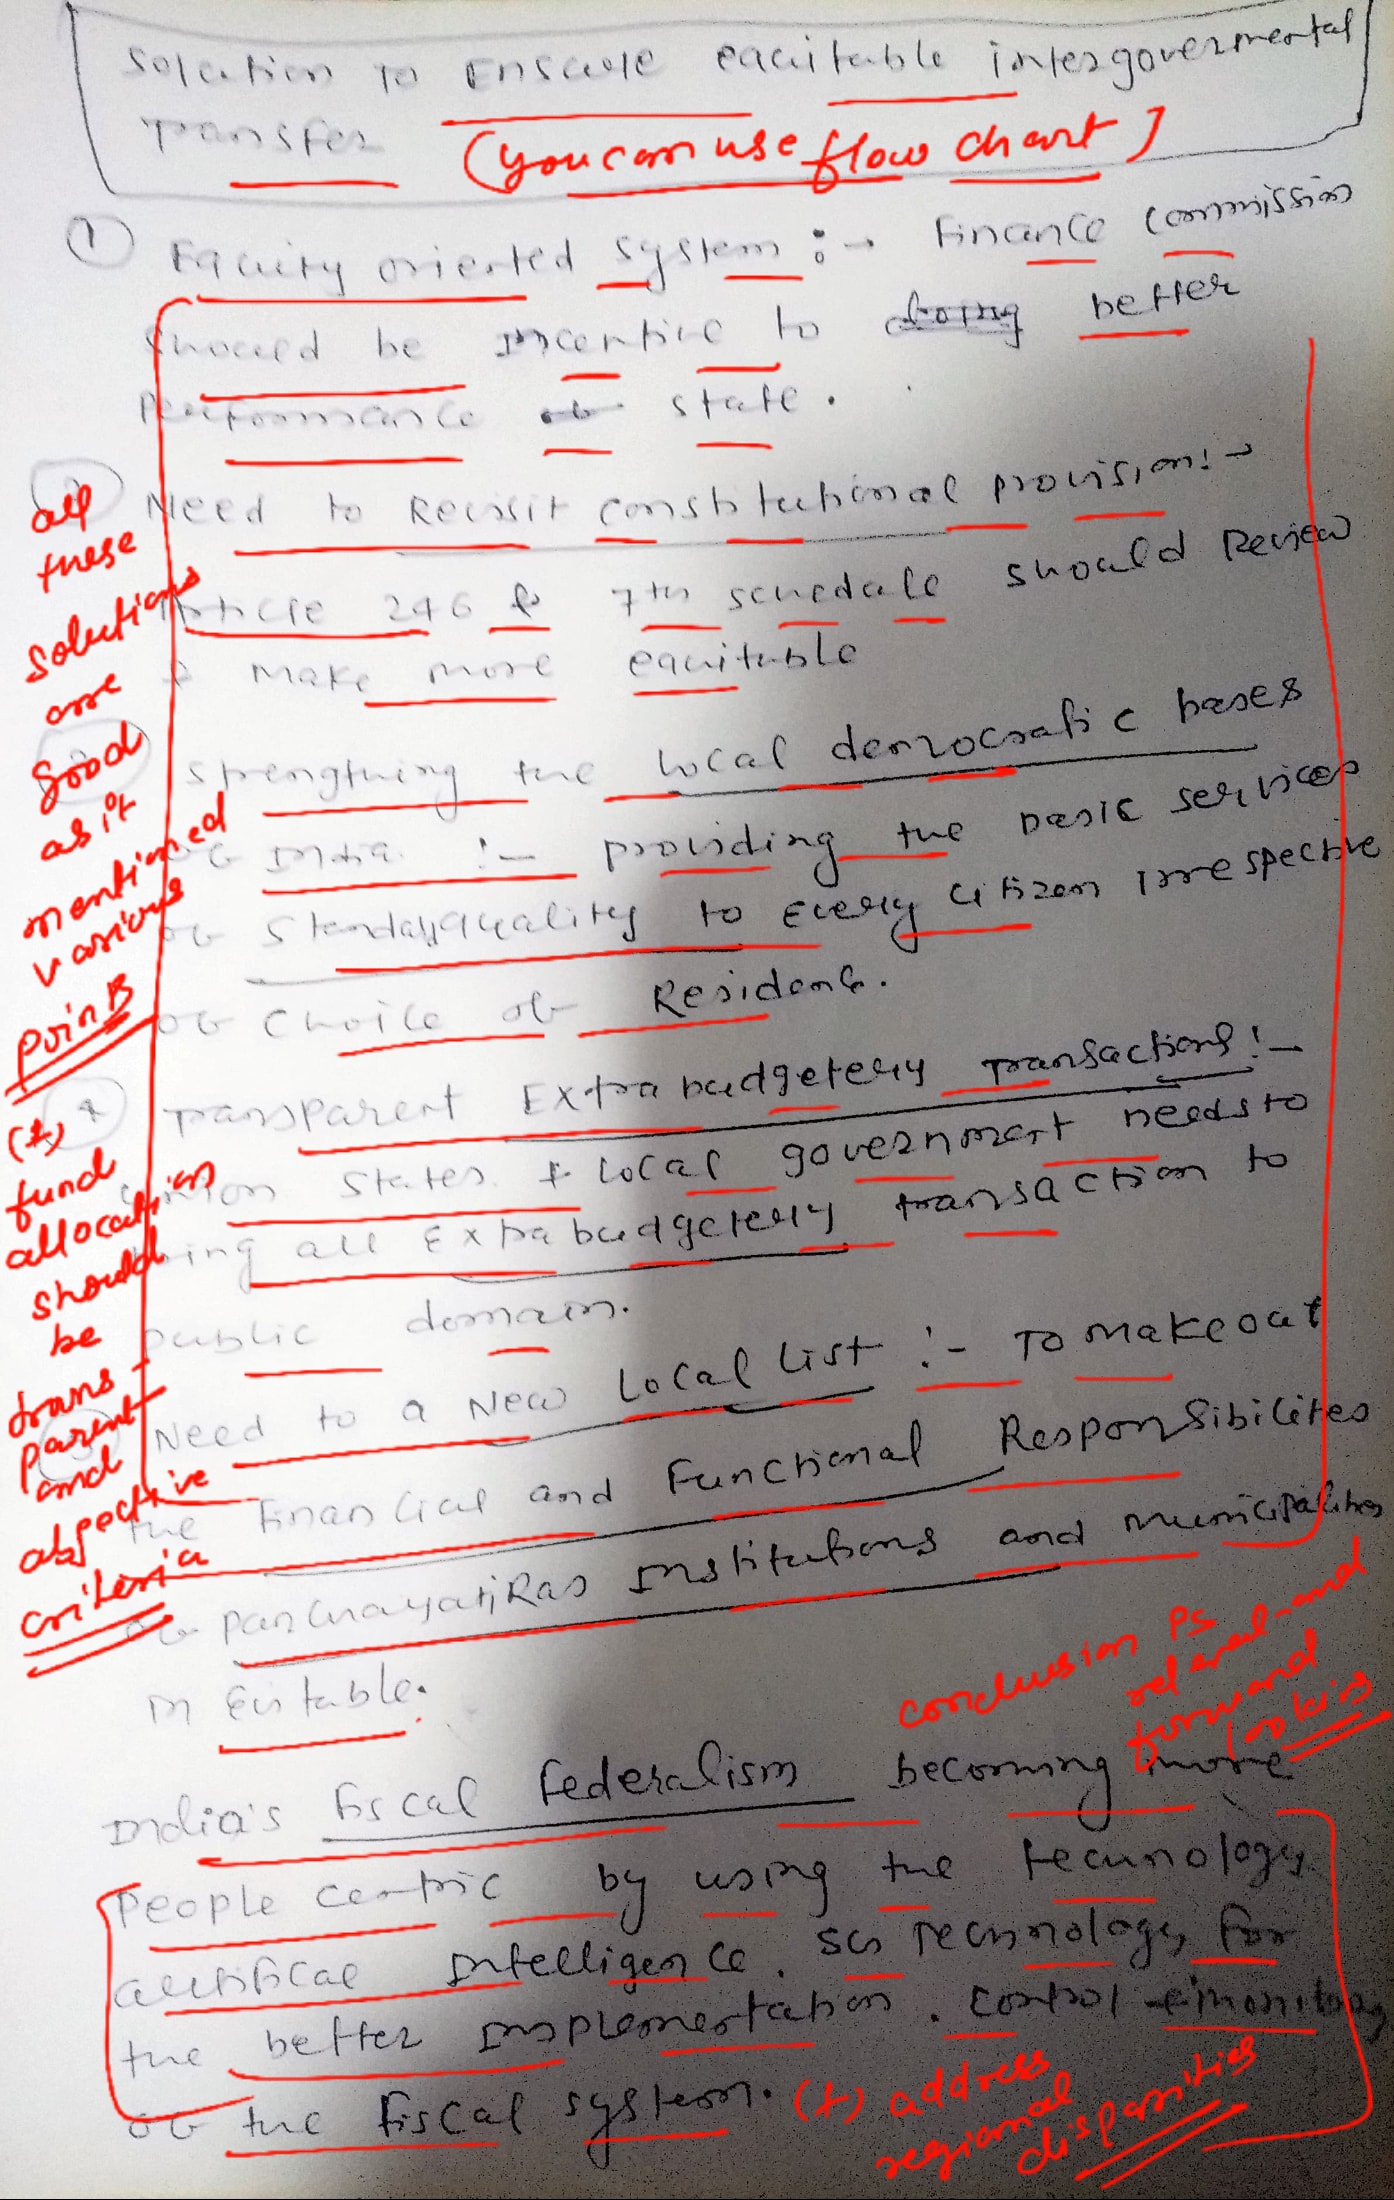 Solution to Ensure equitable intergovernmental
Transfer
(you can use flow chart)
① Equity oriented system :→ Finance commission
should be incentive to doing better
Performance of state.
Need to Revisit constitutional provision:→
Article 246 & 7th schedule should Review
& make more equitable
strengthing the local democratic bases
of India :- providing the basic services
of quality to every citizen irrespective
of choice of Residence.
4 Transparent Extra budgetery Transactions :-
Union States & local government needs to
bring all Extra budgetery transaction to
public domain.
Need to a New Local List :- To make out
the Financial and Functional Responsibilites
of Panchayati Raj Institutions and municipalities
India's fiscal federalism becoming more
People centric by using the technology
Intelligence. Technology for
the better Implementation. control & monitoring
of the fiscal system.
all
these
solutions
are
good
as it
mentioned
various
points
(+)
fund
allocations
should
be
trans-
parent
and
objective
criteria
conclusion is
and
forward
looking
(+) address
regional
disparities